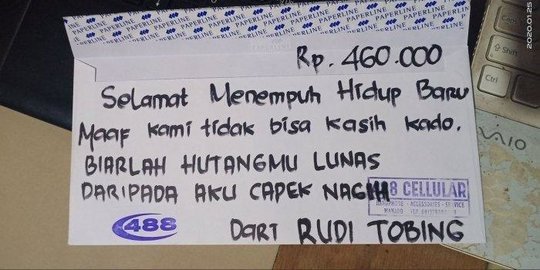 PAPERLINE PAPERLINE PAPERLINE PAPERLINE PAPERLINE
Rp. 460.000
Selamat Menempuh Hidup Baru
Maaf kami tidak bisa kasih kado.
BIARLAH HUTANGMU LUNAS
DARIPADA AKU CAPEK NAGIH
488 CELLULAR
HANDPHONE - ACCESSORIES - SERVICE
488
Dari RUDI TOBING
Shift
Ctrl
Fn
VAIO
2020.01.25